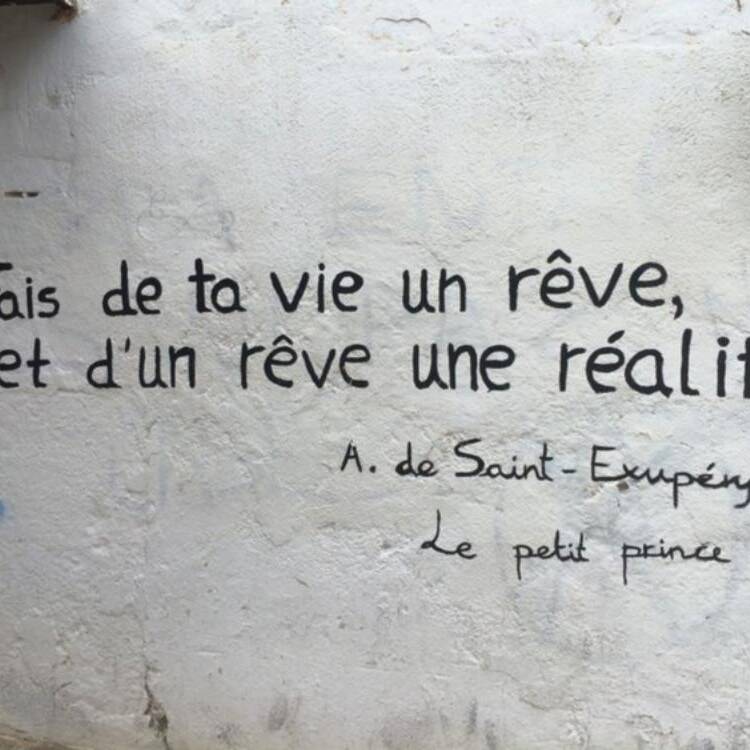 ais de ta vie un rêve,
et d'un rêve une réalit
A. de Saint-Exupéry
Le petit prince